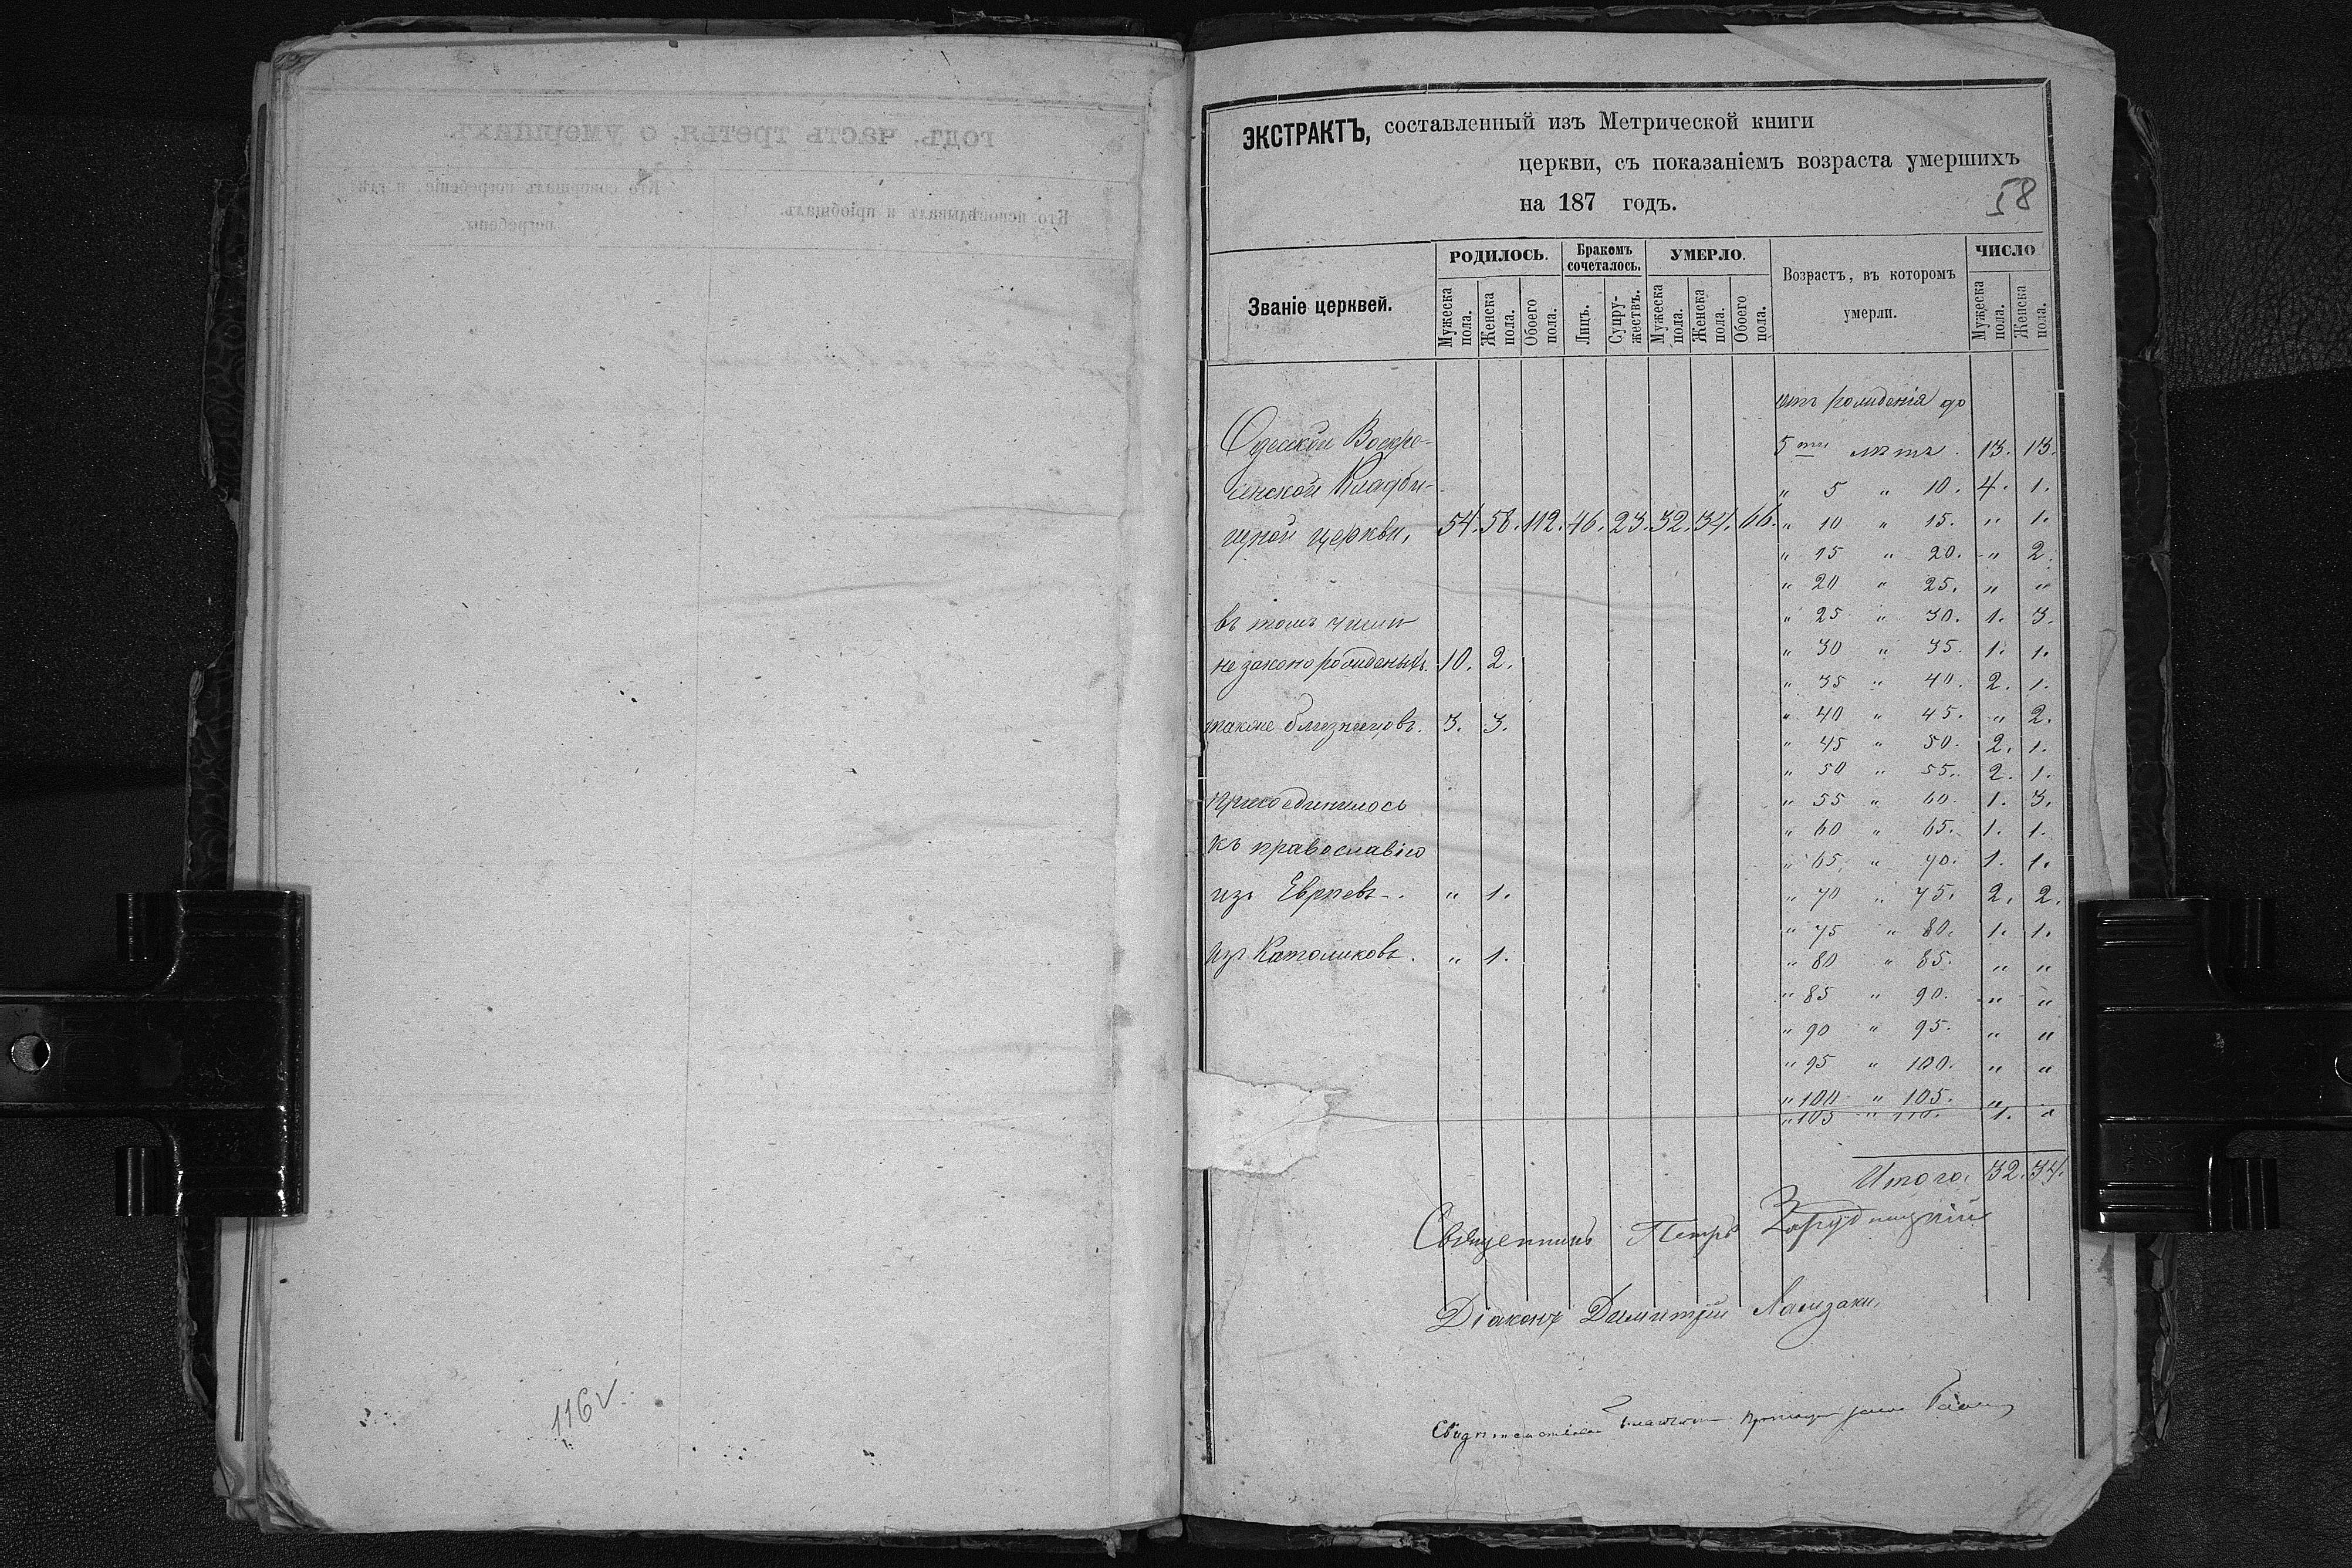 ЭКСТРАКТЪ, составленный изъ Метрической книги
церкви, съ показаніемъ возраста умершихъ
на 187 годъ.
58
Званіе церквей.
РОДИЛОСЬ.
Бракомъ сочеталось.
УМЕРЛО.
Возрастъ, въ которомъ умерли.
ЧИСЛО
Мужеска пола. Женска пола. Обоего пола. Лицъ. Супружествъ. Мужеска пола. Женска пола. Обоего пола. Мужеска пола. Женска пола.
Одесской Воскре-
сенской Кладби-
щной церкви, 54. 58. 112. 46. 23. 32. 34. 66.
въ томъ числѣ
незаконорожденыхъ. 10. 2.
также близнецовъ. 3. 3.
присоединилось
къ православію
изъ Евреевъ. " 1.
изъ Католиковъ. " 1.
отъ рожденія до
5ти лѣтъ. 13. 13.
" 5 " 10. 4. 1.
" 10 " 15. " 1.
" 15 " 20. " 2.
" 20 " 25. " "
" 25 " 30. 1. 3.
" 30 " 35. 1. 1.
" 35 " 40. 2. 1.
" 40 " 45. " 2.
" 45 " 50. 2. 1.
" 50 " 55. 2. 1.
" 55 " 60. 1. 3.
" 60 " 65. 1. 1.
" 65 " 70. 1. 1.
" 70 " 75. 2. 2.
" 75 " 80. 1. 1.
" 80 " 85. " "
" 85 " 90. " "
" 90 " 95. " "
" 95 " 100. " "
" 100 " 105. "
" 105 " 110. 1. "
Итого. 32. 34.
Священникъ Петръ
Діаконъ Димитрій
116 v.
годъ. часть третья, о умершихъ.
Кто исповѣдывалъ и пріобщалъ.
Кто совершалъ погребеніе, и гдѣ
погребены.